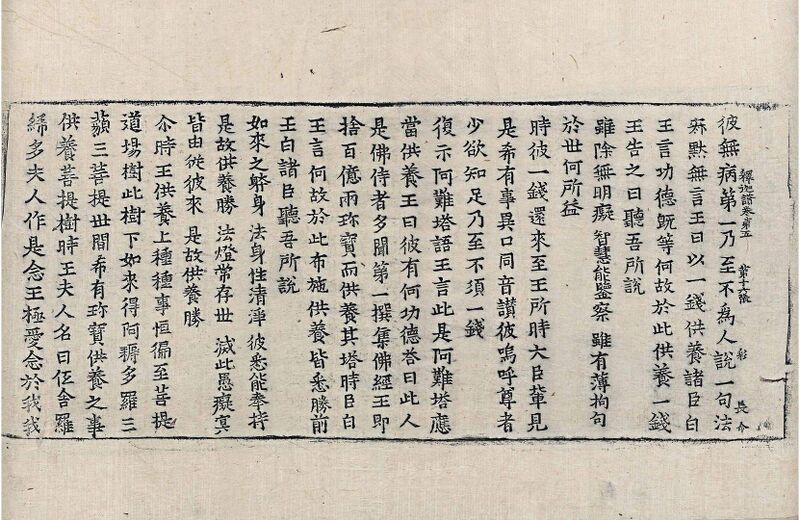 彼無病第一乃至不為人說一句法
釋迦譜卷第五 第十六張 彩
長介
寂默無言王曰以一錢供養諸臣白
王言功德既等何故於此供養一錢
王告之曰聽吾所說
雖除無明癡 智慧能鑒察 雖有薄拘句
於世何所益
時彼一錢還來至王所時大臣輩見
是希有事異口同音讚彼嗚呼尊者
少欲知足乃至不須一錢
復示阿難塔語王言此是阿難塔應
當供養王曰彼有何功德荅曰此人
是佛侍者多聞第一撰集佛經王即
捨百億兩珎寶而供養其塔時臣白
王言何故於此布施供養皆悉勝前
王曰諸臣聽吾所說
如來之躰身 法身性清淨 彼悉能奉持
是故供養勝 法燈常存世 滅此愚癡冥
皆由從彼來 是故供養勝
尒時王供養上種種事恒徧至菩提
道場樹此樹下如來得阿耨多羅三
藐三菩提世間希有珎寶供養之事
供養菩提樹時王夫人名曰低舍羅
絺多夫人作是念王極愛念於我我